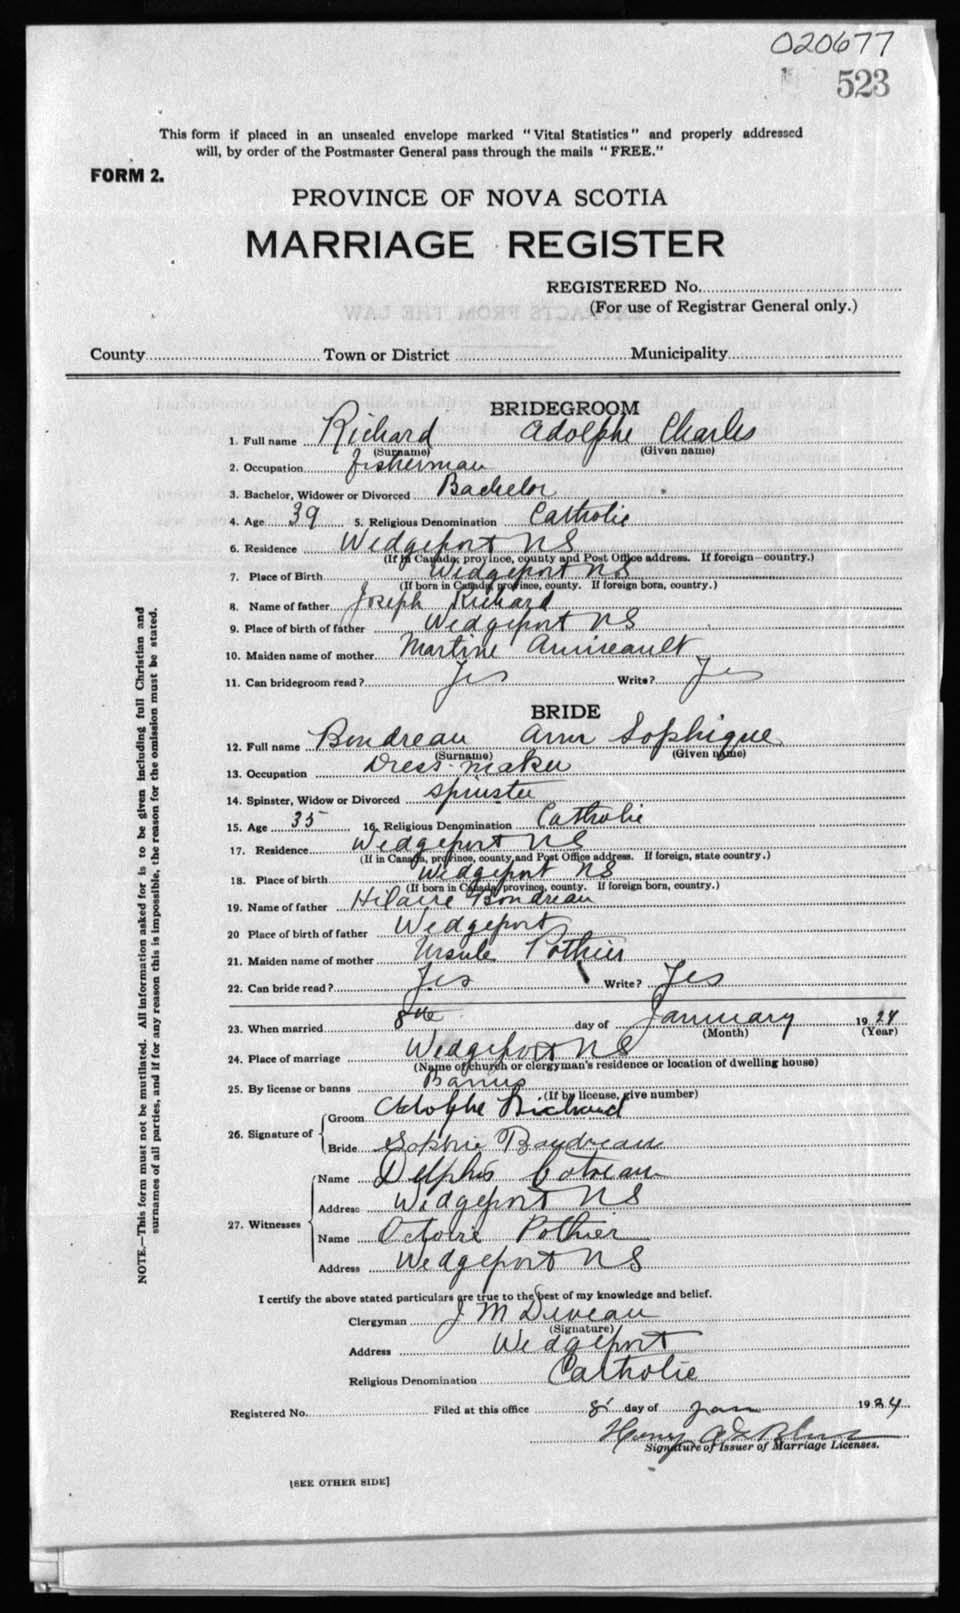 020677
523
This form if placed in an unsealed envelope marked "Vital Statistics" and properly addressed
will, by order of the Postmaster General pass through the mails "FREE."
FORM 2.
PROVINCE OF NOVA SCOTIA
MARRIAGE REGISTER
REGISTERED No.
(For use of Registrar General only.)
County Town or District Municipality
BRIDEGROOM
1. Full name Richard Adolphe Charles
(Surname) (Given name)
2. Occupation Fisherman
3. Bachelor, Widower or Divorced Bachelor
4. Age 39 5. Religious Denomination Catholic
6. Residence Wedgeport NS
(If in Canada, province, county and Post Office address. If foreign—country.)
7. Place of Birth Wedgeport NS
(If born in Canada, province, county. If foreign born, country.)
8. Name of father Joseph Richard
9. Place of birth of father Wedgeport NS
10. Maiden name of mother Martine Amireault
11. Can bridegroom read? Yes Write? Yes
BRIDE
12. Full name Boudreau Ann Sophique
(Surname) (Given name)
13. Occupation Dress-maker
14. Spinster, Widow or Divorced Spinster
15. Age 35 16. Religious Denomination Catholic
17. Residence Wedgeport NS
(If in Canada, province, county and Post Office address. If foreign, state country.)
18. Place of birth Wedgeport NS
(If born in Canada, province, county. If foreign born, country.)
19. Name of father Hilaire Boudreau
20 Place of birth of father Wedgeport
21. Maiden name of mother Ursule Pothier
22. Can bride read? Yes Write? Yes
23. When married 8th day of January 1924
(Month) (Year)
24. Place of marriage Wedgeport NS
(Name of church or clergyman's residence or location of dwelling house)
25. By license or banns Banns
(If by license, give number)
26. Signature of Groom Adolphe Richard
Bride Sophie Boudreau
27. Witnesses Name Delphis Cotreau
Address Wedgeport NS
Name Octoire Pothier
Address Wedgeport NS
I certify the above stated particulars are true to the best of my knowledge and belief.
Clergyman J M Deveau
(Signature)
Address Wedgeport
Religious Denomination Catholic
Registered No. Filed at this office 8 day of Jan 1924
Henry
Signature of Issuer of Marriage Licenses.
[SEE OTHER SIDE]
NOTE.—This form must not be mutilated. All information asked for is to be given including full Christian and
surnames of all parties, and if for any reason this is impossible, the reason for the omission must be stated.